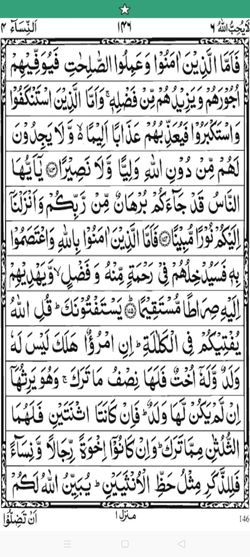 النِّسَآء ٤ ١٤٦ لَا يُحِبُّ اللّٰهُ ٦
فَاَمَّا الَّذِيْنَ اٰمَنُوْا وَعَمِلُوا الصّٰلِحٰتِ فَيُوَفِّيْهِمْ
اُجُوْرَهُمْ وَيَزِيْدُهُمْ مِّنْ فَضْلِهٖ ۚ وَاَمَّا الَّذِيْنَ اسْتَنْكَفُوْا
وَاسْتَكْبَرُوْا فَيُعَذِّبُهُمْ عَذَابًا اَلِيْمًا ۙ وَّلَا يَجِدُوْنَ
لَهُمْ مِّنْ دُوْنِ اللّٰهِ وَلِيًّا وَّلَا نَصِيْرًا ﴿١٧٣﴾ يٰۤاَيُّهَا
النَّاسُ قَدْ جَآءَكُمْ بُرْهَانٌ مِّنْ رَّبِّكُمْ وَاَنْزَلْنَاۤ
اِلَيْكُمْ نُوْرًا مُّبِيْنًا ﴿١٧٤﴾ فَاَمَّا الَّذِيْنَ اٰمَنُوْا بِاللّٰهِ وَاعْتَصَمُوْا
بِهٖ فَسَيُدْخِلُهُمْ فِيْ رَحْمَةٍ مِّنْهُ وَفَضْلٍ ۙ وَّيَهْدِيْهِمْ
اِلَيْهِ صِرَاطًا مُّسْتَقِيْمًا ﴿١٧٥﴾ يَسْتَفْتُوْنَكَ ؕ قُلِ اللّٰهُ
يُفْتِيْكُمْ فِي الْكَلٰلَةِ ؕ اِنِ امْرُؤٌا هَلَكَ لَيْسَ لَهٗ
وَلَدٌ وَّلَهٗۤ اُخْتٌ فَلَهَا نِصْفُ مَا تَرَكَ ۚ وَهُوَ يَرِثُهَاۤ
اِنْ لَّمْ يَكُنْ لَّهَا وَلَدٌ ؕ فَاِنْ كَانَتَا اثْنَتَيْنِ فَلَهُمَا
الثُّلُثٰنِ مِمَّا تَرَكَ ؕ وَاِنْ كَانُوْۤا اِخْوَةً رِّجَالًا وَّنِسَآءً
فَلِلذَّكَرِ مِثْلُ حَظِّ الْاُنْثَيَيْنِ ؕ يُبَيِّنُ اللّٰهُ لَكُمْ
اَنْ تَضِلُّوْا منزل ١ 146